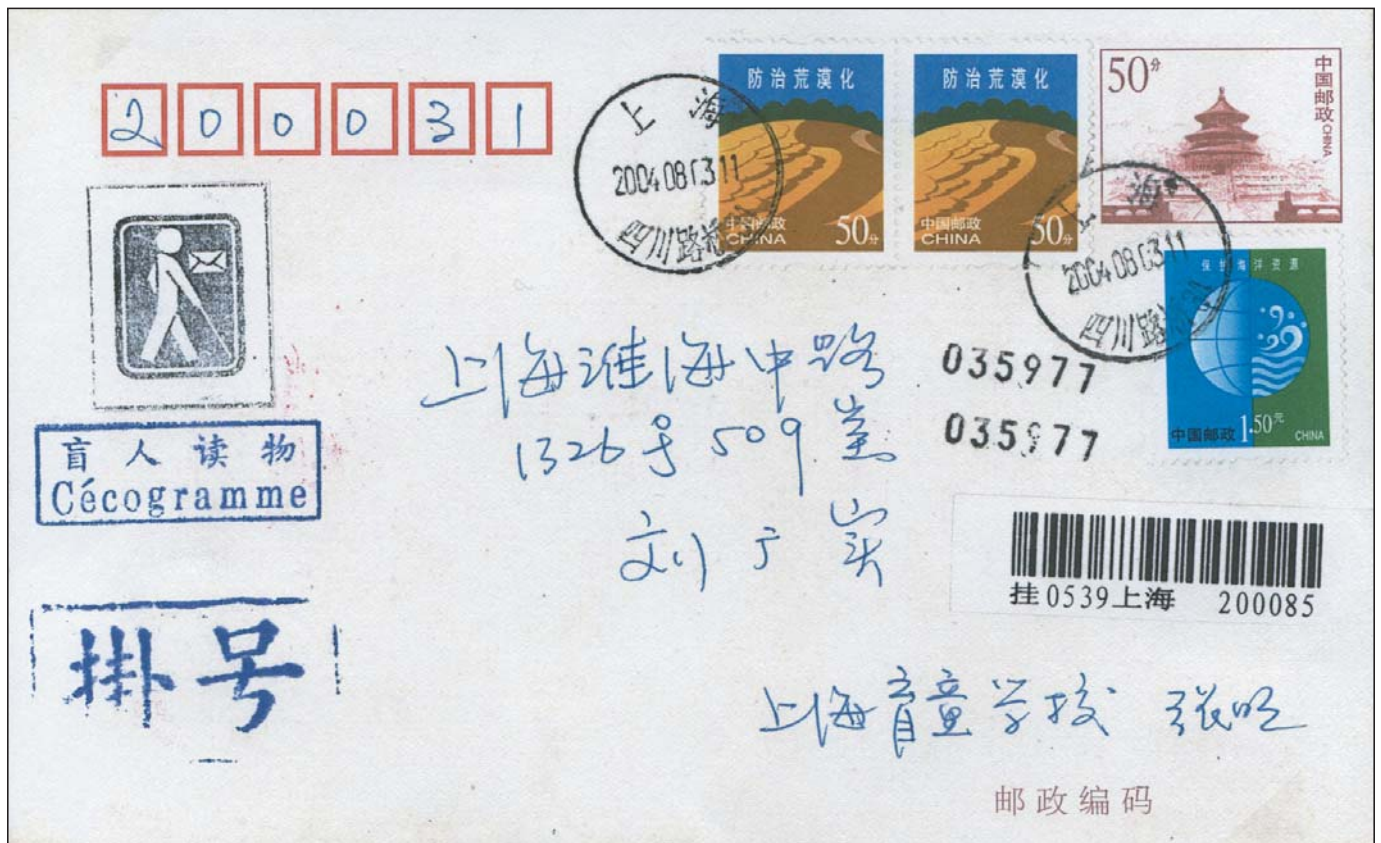 200031
防治荒漠化
中国邮政
CHINA
50分
防治荒漠化
中国邮政
CHINA
50分
50分
中国邮政 CHINA
上海
2004.08.03.11
四川路桥
上海
2004.08.03.11
四川路桥
保护海洋资源
中国邮政 1.50元 CHINA
盲人读物
Cécogramme
掛号
上海淮海中路
1326号509室
刘广实
035977
035977
挂0539上海 200085
上海盲童学校 张明
邮政编码